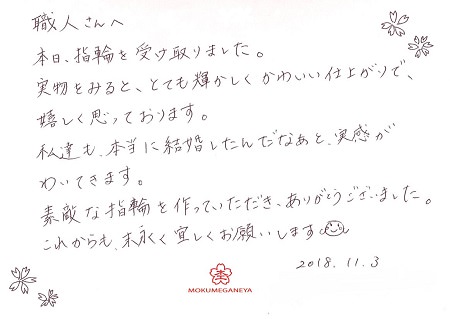 職人さんへ
本日、指輪を受け取りました。
実物をみると、とても輝かしくかわいい仕上がりで、
嬉しく思っております。
私達も、本当に結婚したんだなあと、実感が
わいてきます。
素敵な指輪を作っていただき、ありがとうございました。
これからも、末永く宜しくお願いします
MOKUMEGANEYA
2018.11.3